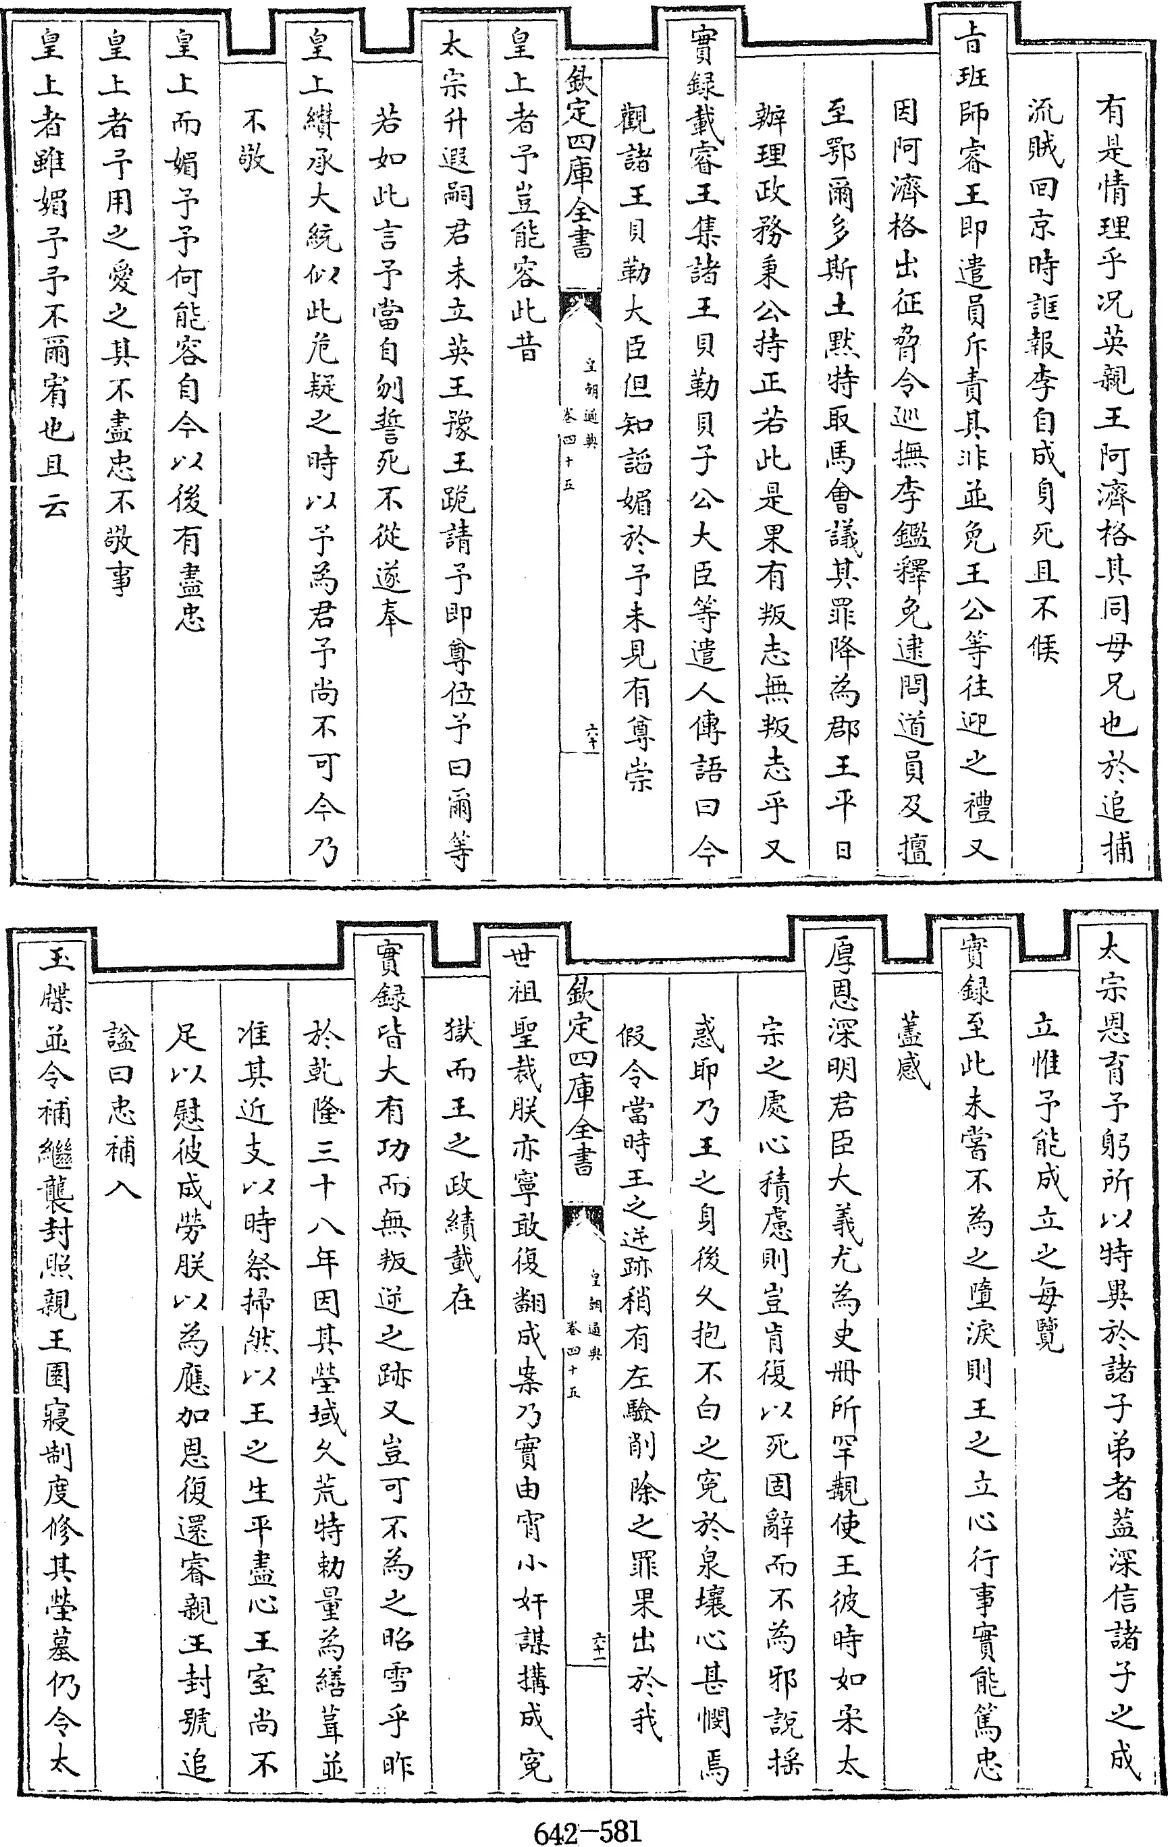 有是情理乎況英親王阿濟格其同母兄也於追捕
流賊回京時誑報李自成身死且不候
㫖班師睿王即遣員斥責其非並免王公等往迎之禮又
因阿濟格出征脅令巡撫李鑑釋免逮問道員及擅
至鄂爾多斯土黙特取馬會議其罪降為郡王平日
辦理政務秉公持正若此是果有叛志無叛志乎又
實録載睿王集諸王貝勒貝子公大臣等遣人傳語曰今
觀諸王貝勒大臣但知謟媚於予未見有尊崇
欽定四庫全書
皇朝通典
卷四十五
六十
皇上者予豈能容此昔
太宗升遐嗣君未立英王豫王跪請予即尊位予曰爾等
若如此言予當自刎誓死不從遂奉
皇上纘承大統似此危疑之時以予為君予尚不可今乃
不敬
皇上而媚予予何能容自今以後有盡忠
皇上者予用之愛之其不盡忠不敬事
皇上者雖媚予予不爾宥也且云
太宗恩育予躬所以特異於諸子弟者葢深信諸子之成
立惟予能成立之每覽
實録至此未嘗不為之墮淚則王之立心行事實能篤忠
藎感
厚恩深明君臣大義尤為史冊所罕覯使王彼時如宋太
宗之處心積慮則豈肯復以死固辭而不為邪説揺
惑耶乃王之身後乆抱不白之寃於泉壤心甚憫焉
假令當時王之逆跡稍有左驗削除之罪果出於我
欽定四庫全書
皇朝通典
卷四十五
六十一
世祖聖裁朕亦寧敢復翻成案乃實由宵小奸謀搆成寃
獄而王之政績載在
實録皆大有功而無叛逆之跡又豈可不為之昭雪乎昨
於乾隆三十八年因其塋域乆荒特勅量為繕葺並
准其近支以時祭掃然以王之生平盡心王室尚不
足以慰彼成勞朕以為應加恩復還睿親王封號追
諡曰忠補入
玉牒並令補繼襲封照親王園寢制度修其塋墓仍令太
642-581